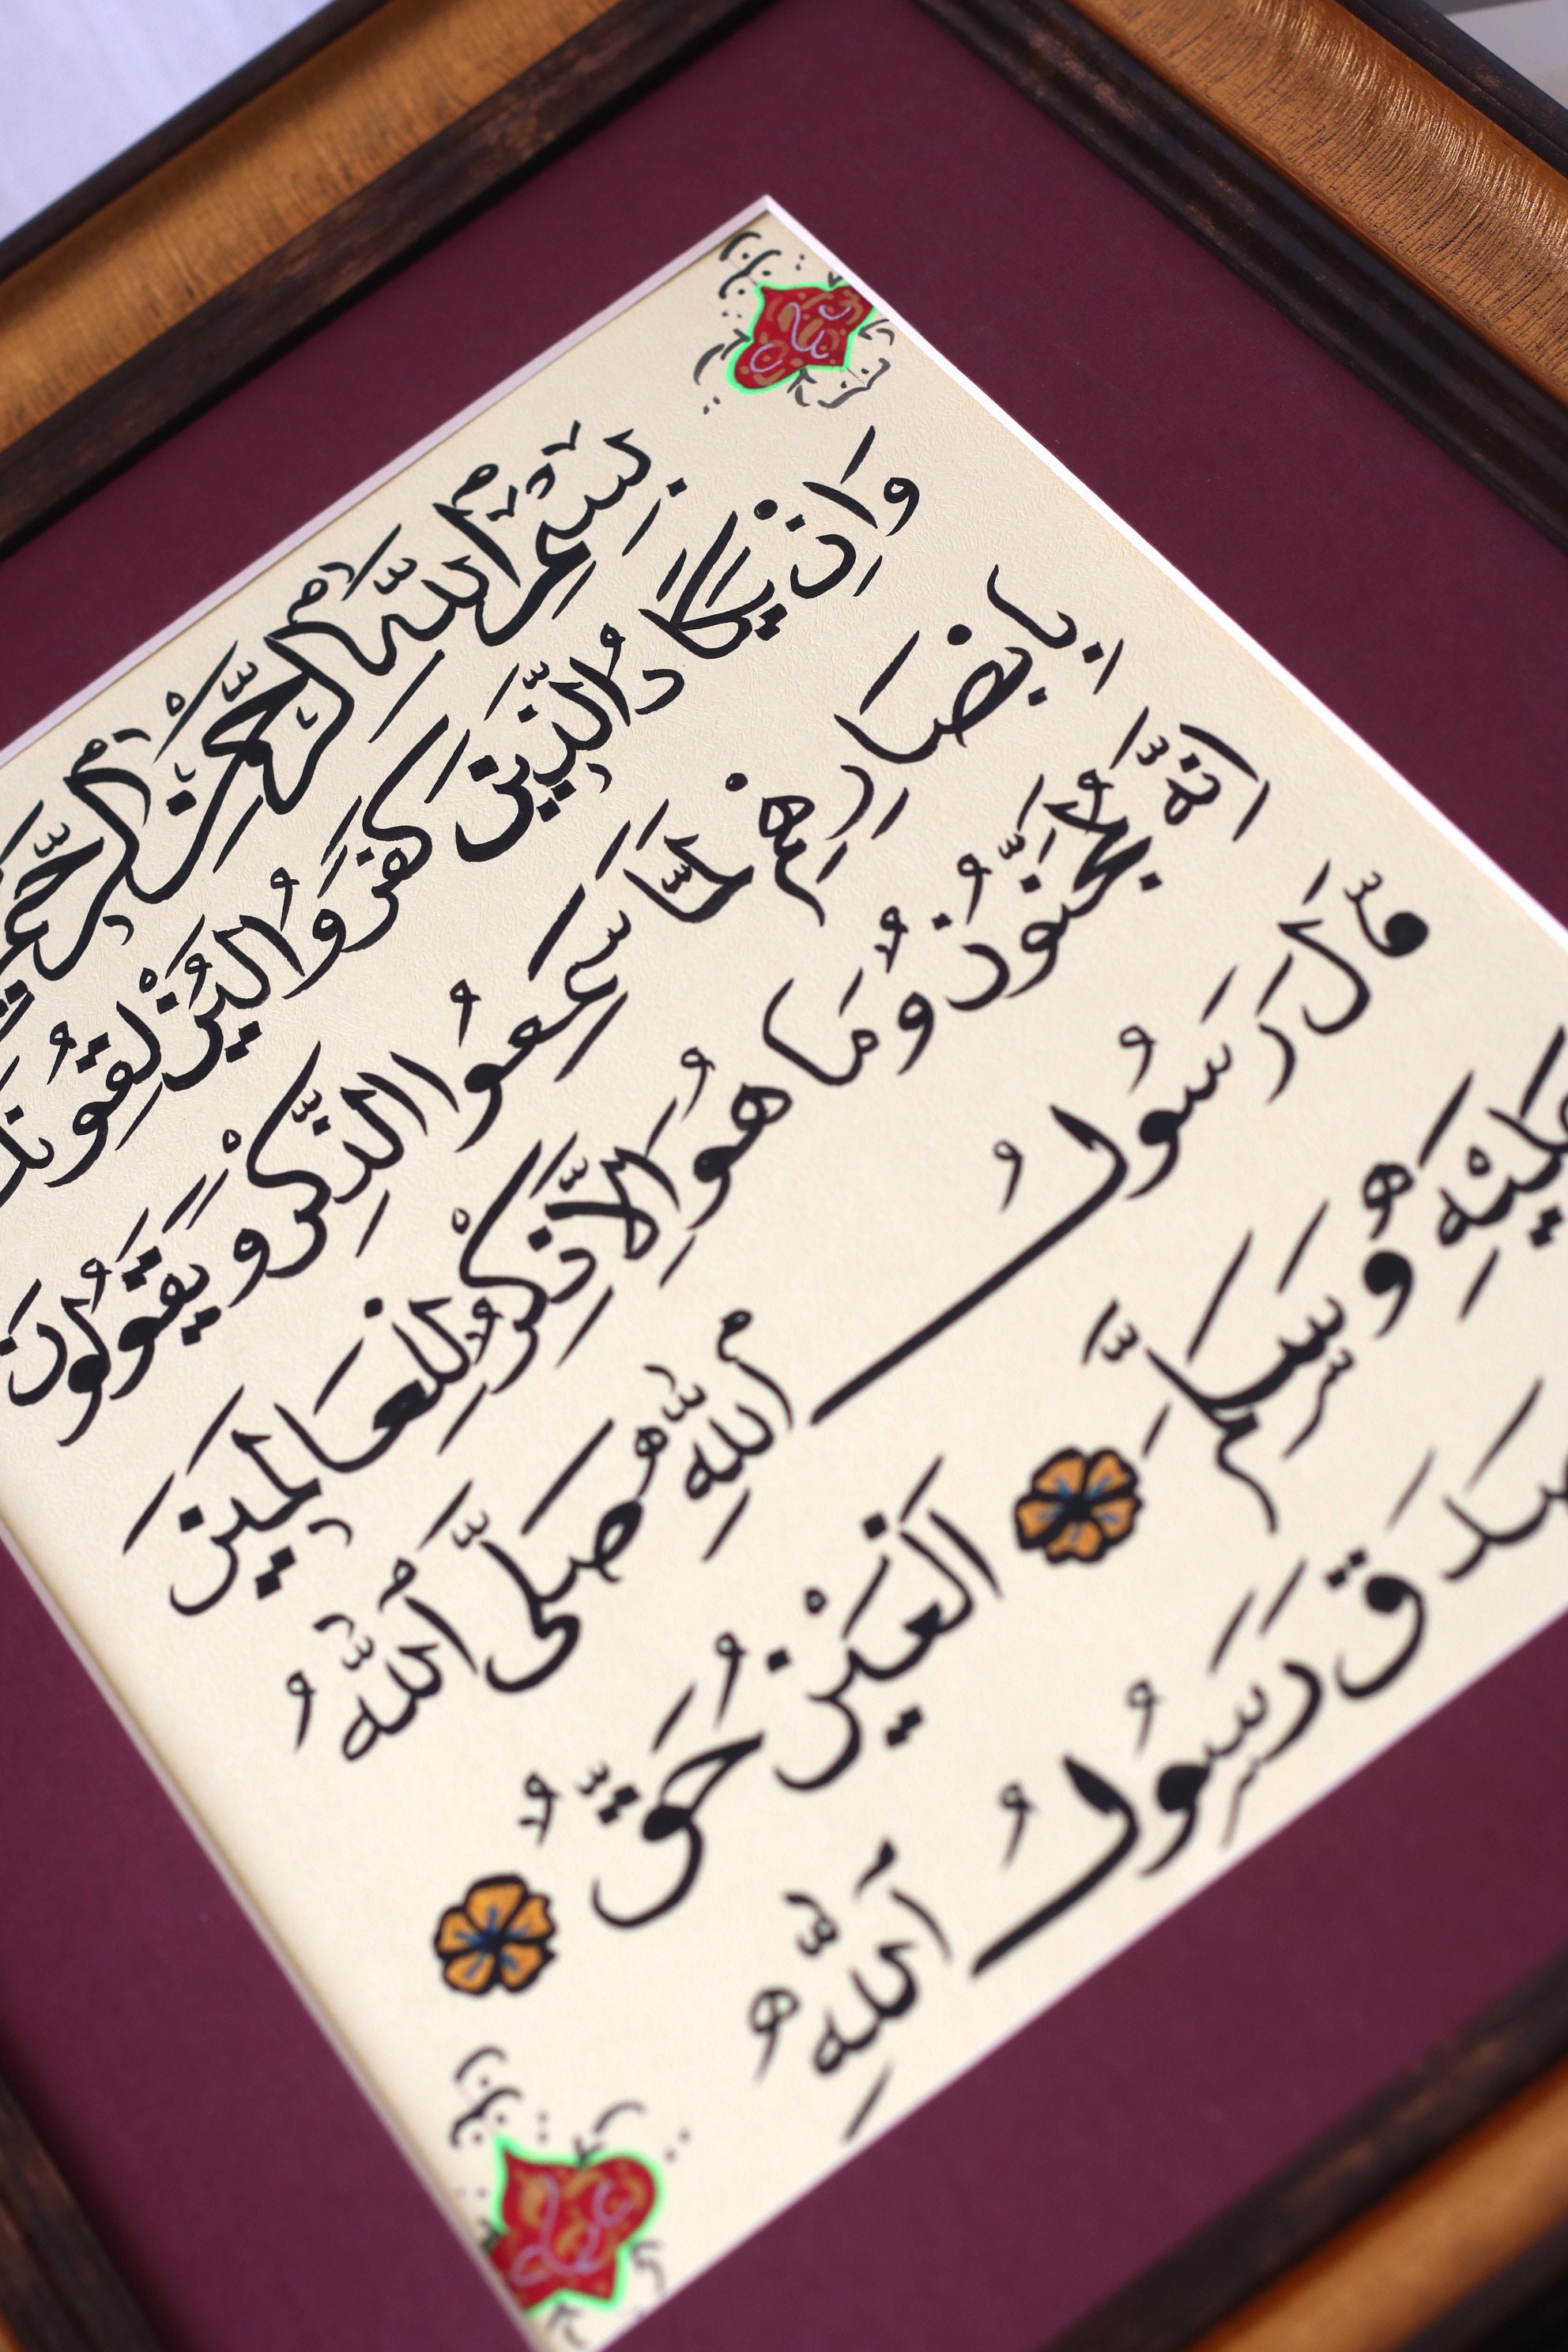 بِسْمِ اللَّهِ الرَّحْمَٰنِ الرَّحِيمِ
وَاِنْ يَكَادُ الَّذِينَ كَفَرُوا لَيُزْلِقُونَكَ
بِاَبْصَارِهِمْ لَمَّا سَمِعُوا الذِّكْرَ وَيَقُولُونَ
اِنَّهُ لَمَجْنُونٌ وَمَا هُوَ اِلَّا ذِكْرٌ لِلْعَالَمِينَ
قَالَ رَسُولُ اللهِ صَلَّى اللهُ
عَلَيْهِ وَسَلَّمَ الْعَيْنُ حَقٌّ
صَدَقَ رَسُولُ اللهِ